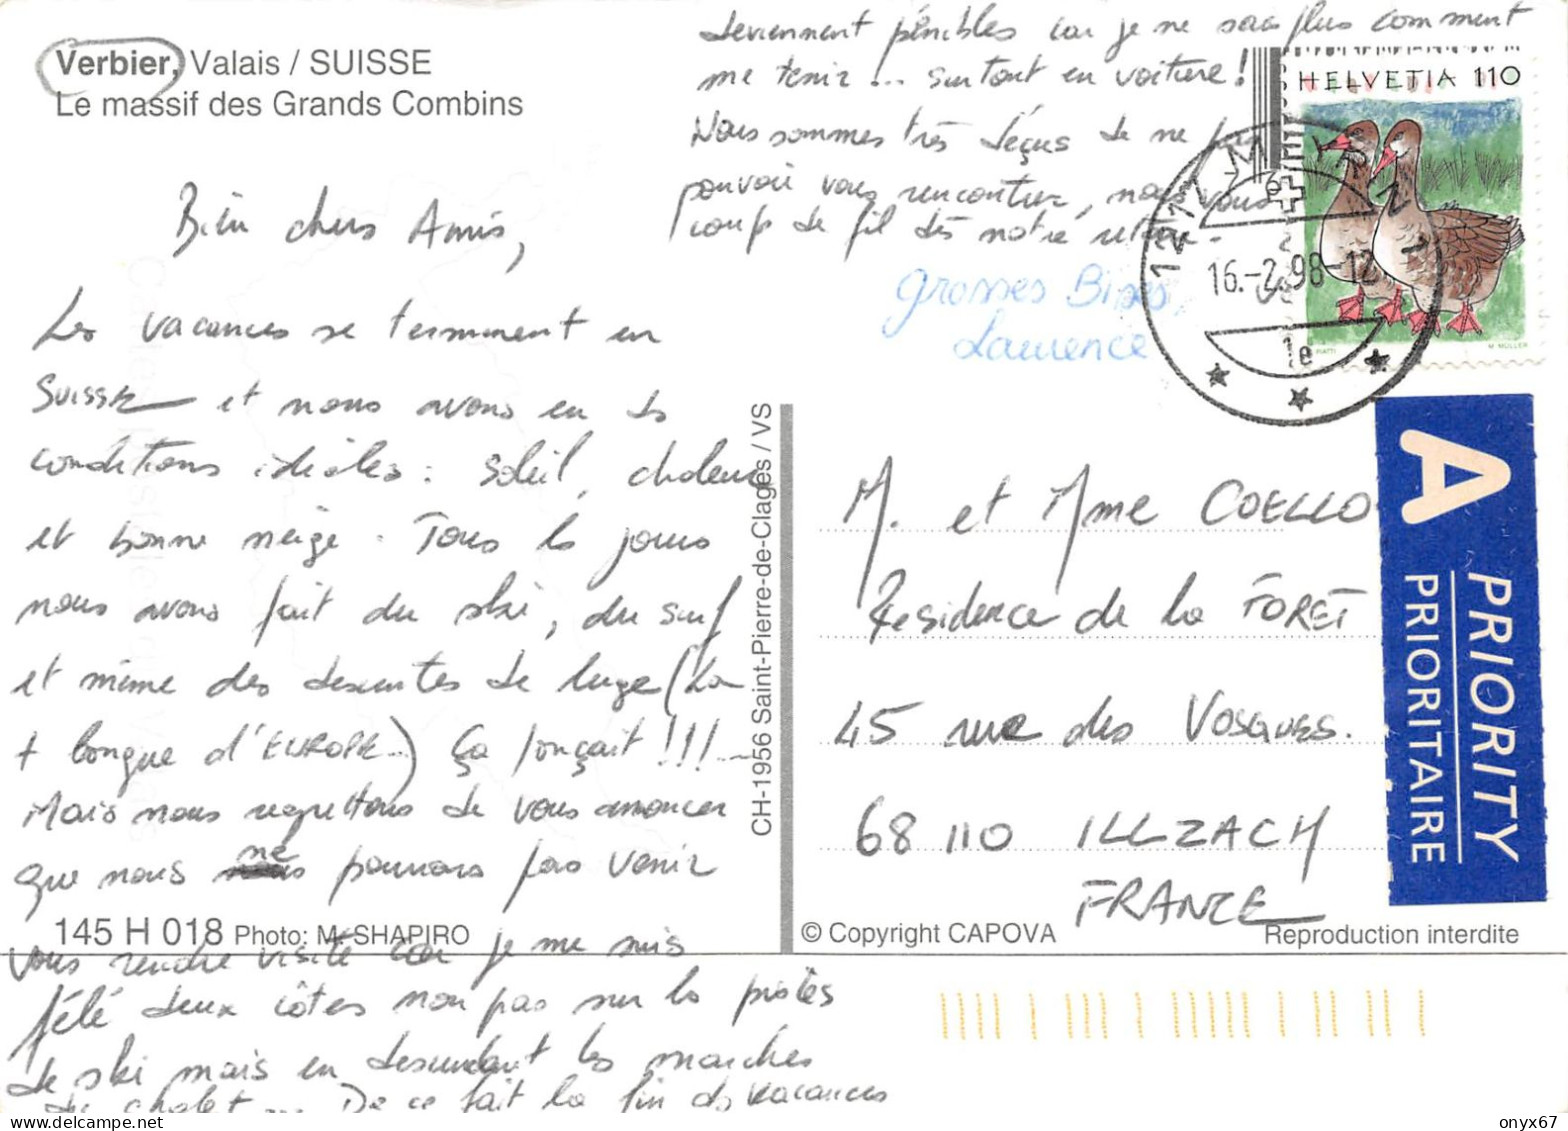 Verbier, Valais / SUISSE
Le massif des Grands Combins
Bien chers Amis,
Les vacances se terminent en
SUISSE et nous avons eu des
conditions idéales : soleil, chaleur
et bonne neige. Tous les jours
nous avons fait du ski, du surf
et même des descentes de luge (la
+ longue d'EUROPE...) ça fonçait !!!
Mais nous regrettons de vous annoncer
que nous ne pourrons pas venir
145 H 018 Photo: M. SHAPIRO
vous rendre visite car je me suis
fêlé deux côtes non pas sur les pistes
de ski mais en descendant les marches
du chalet ... De ce fait la fin des vacances
deviennent pénibles car je ne sais plus comment
me tenir ... surtout en voiture !
Nous sommes très déçus de ne pas
pouvoir vous rencontrer, nous vous
coup de fil dès notre retour.
Grosses Bises,
Laurence
HELVETIA 110
M. MÜLLER
16.-2.98-12
1e
CH-1956 Saint-Pierre-de-Clages / VS
M. et Mme COELLO
Residence de la FORET
45 rue des VOSGUES.
68 110 ILLZACH
FRANCE
A
PRIORITY
PRIORITAIRE
© Copyright CAPOVA
Reproduction interdite
onyx67